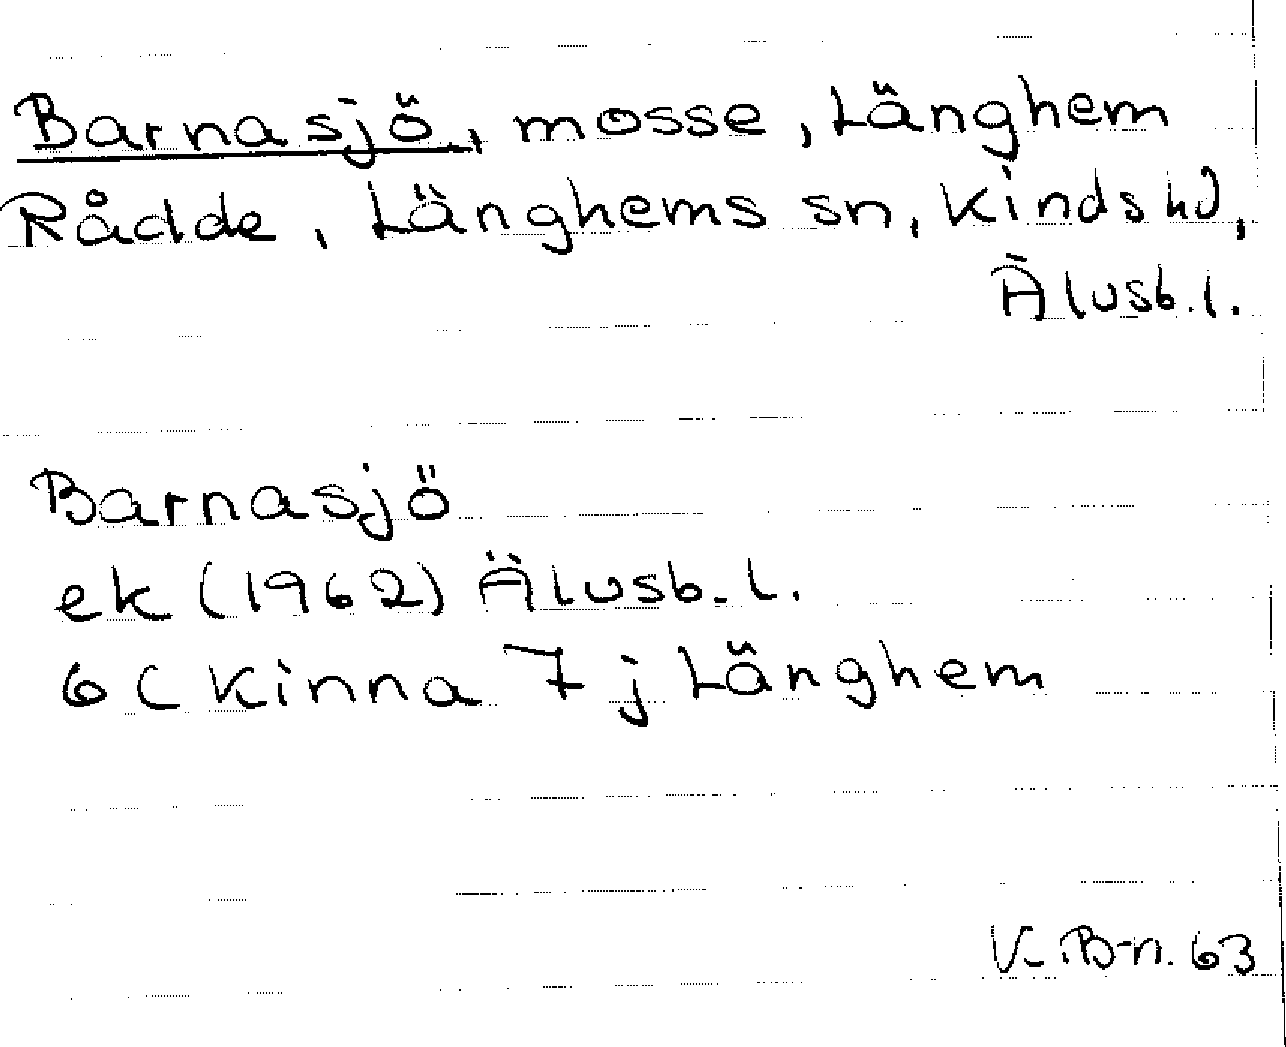 Barnasjö, mosse, Länghem
Rådde, Länghems sn, Kinds hd,
Älvsb. l.
Barnasjö
ek (1962) Älvsb. l.
6C Kinna 7j Länghem
K. B-n. 63